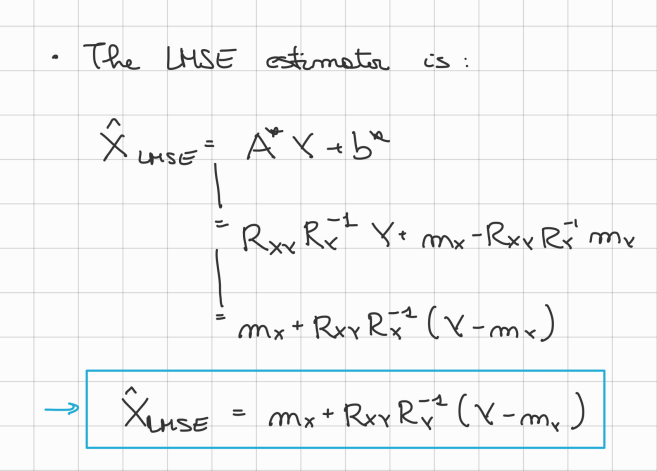 • The LMSE estimator is :
X̂_LMSE = A* Y + b*
= R_XY R_Y^-1 Y + m_x - R_XY R_Y^-1 m_Y
= m_x + R_XY R_Y^-1 (Y - m_Y)
→ X̂_LMSE = m_x + R_XY R_Y^-1 (Y - m_Y)